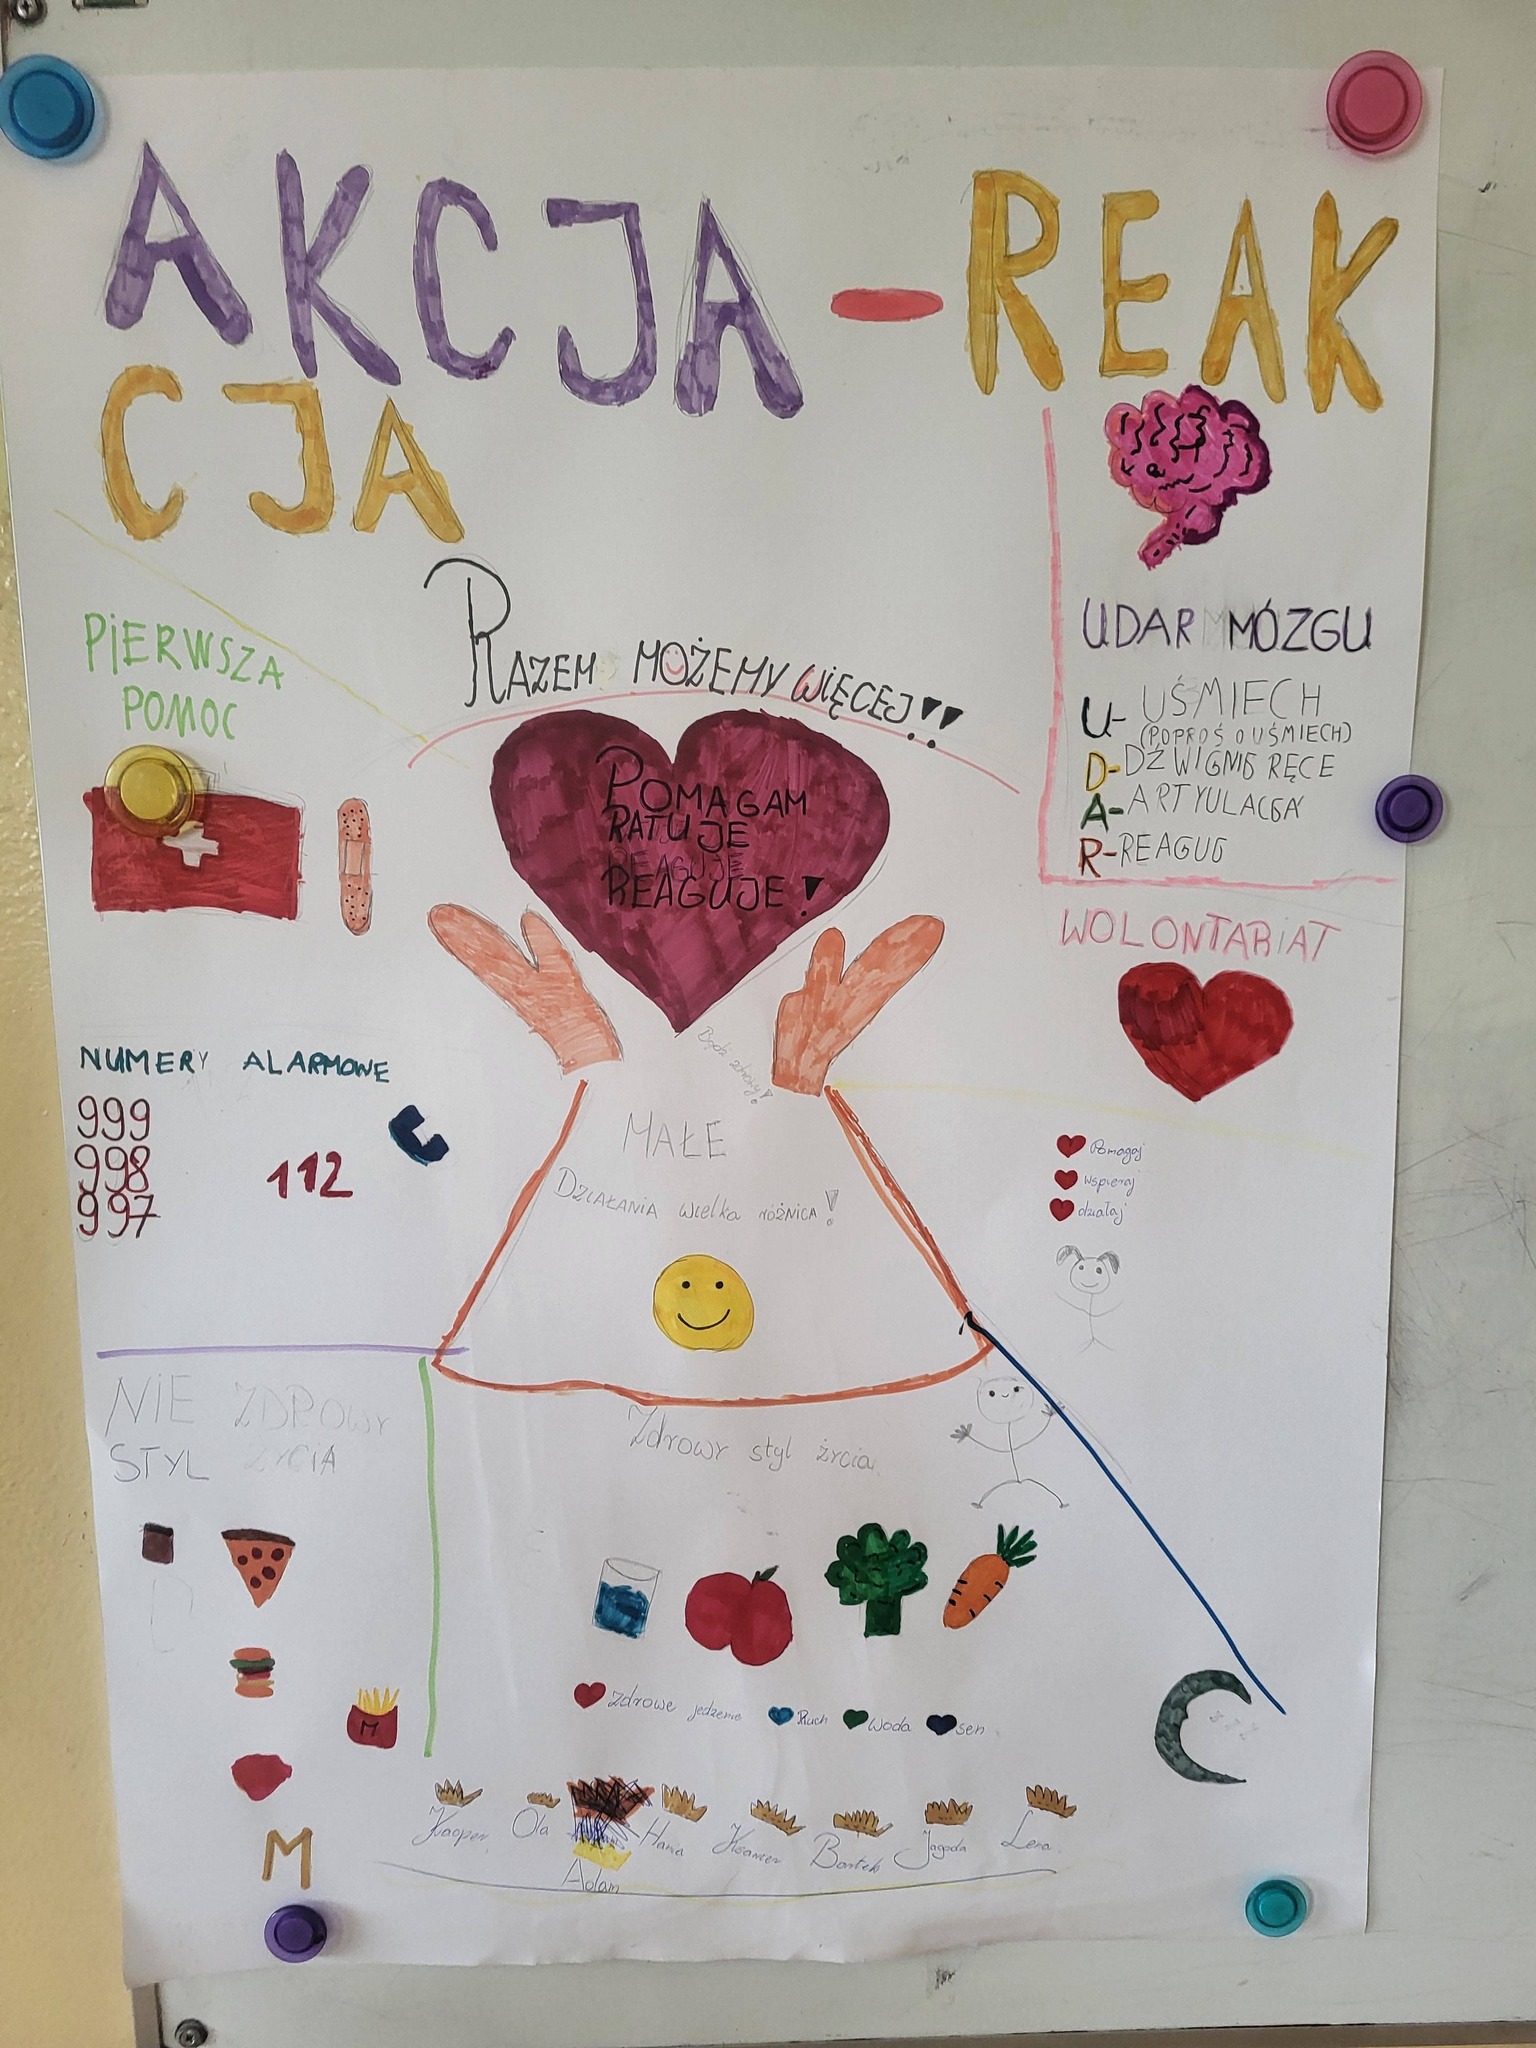 AKCJA - REAK
CJA
PIERWSZA
POMOC
RAZEM MOŻEMY WIĘCEJ!!
POMAGAM
RATUJE
REAGUJE
REAGUJE!
UDAR MÓZGU
U- UŚMIECH
(POPROŚ O UŚMIECH)
D- DŹWIGNIG RĘCE
A- ARTYULACGA
R- REAGUG
WOLONTARiAT
NUMERY ALARMOWE
999
998
997
112
Bądź zdrowy!
MAŁE
DZIAŁANIA wielka RÓŻNICA!
Pomagaj
wspieraj
działaj
NIE ZDROWY
STYL ŻYCIA
Zdrowy styl życia
M
Zdrowe jedzenie Ruch Woda sen
zzz
M
Kacper Ola Hania Ksawer Bartek Jagoda Lena
Adam